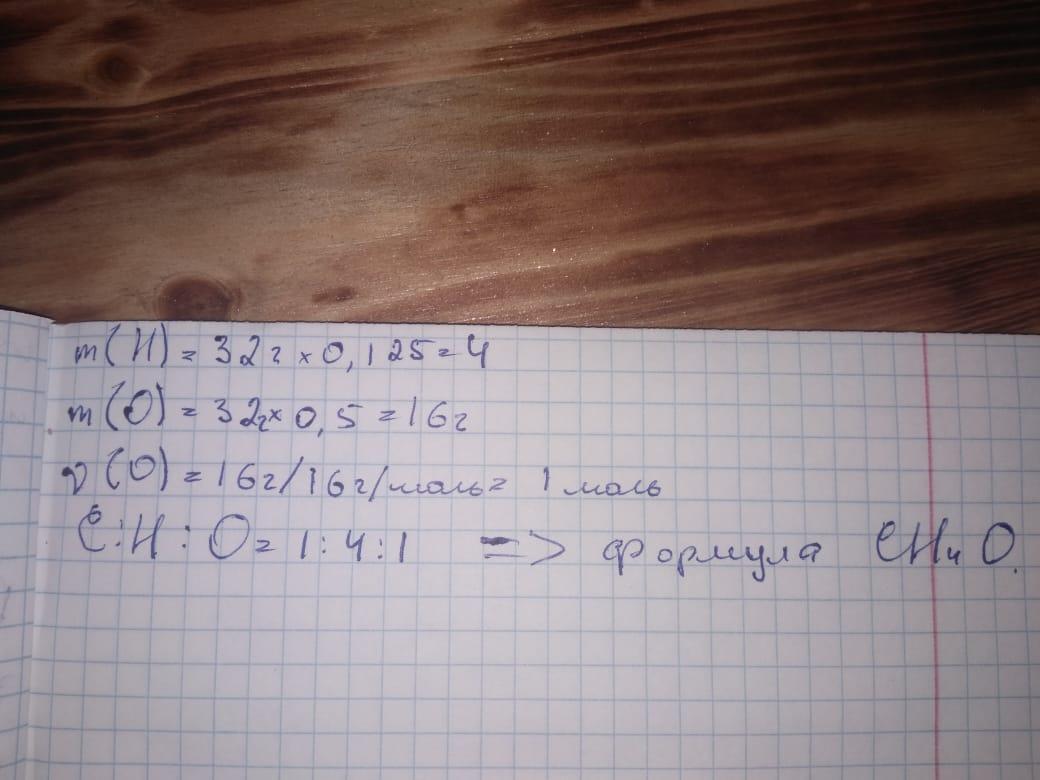 m(H) = 32г × 0,125 = 4
m(O) = 32г × 0,5 = 16г
ν(O) = 16г/16г/моль = 1 моль
C:H:O = 1:4:1 => формула CH₄O.